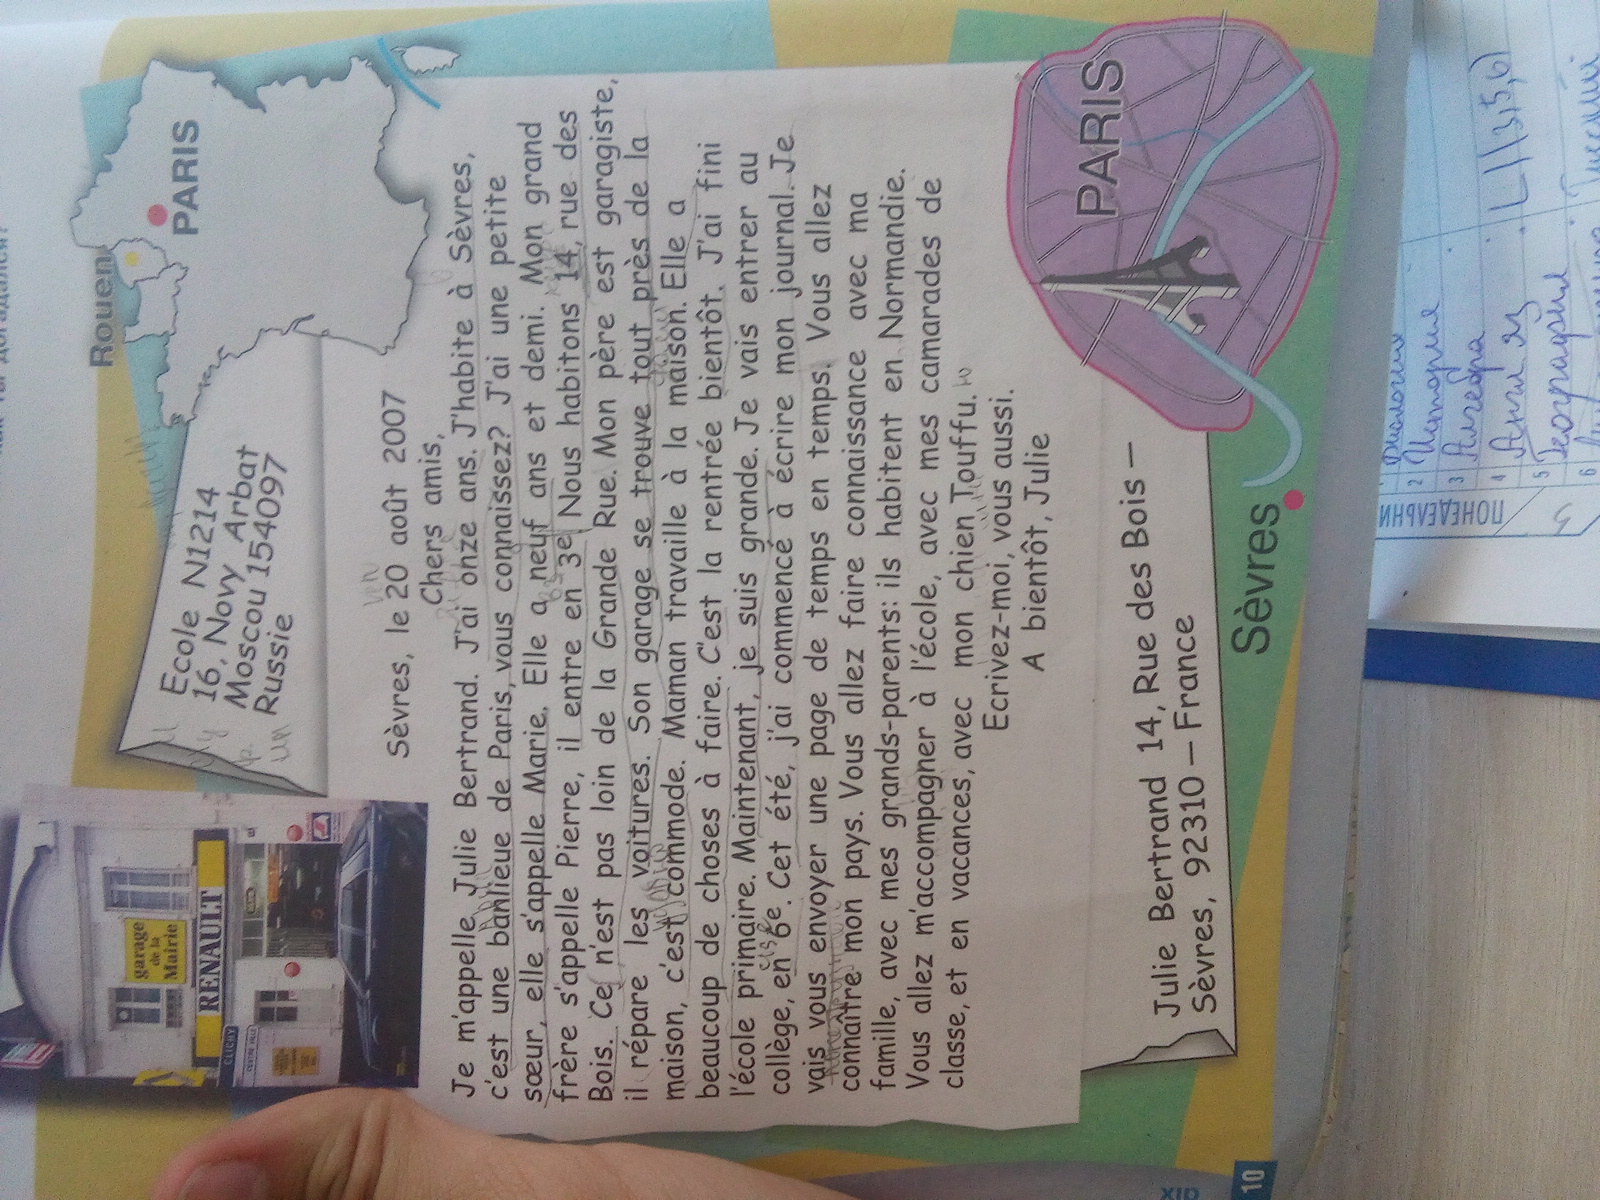 Rouen
PARIS
Ecole N1214
16, Novy Arbat
Moscou 154097
Russie
garage
de la
Mairie
RENAULT
CLICHY
Sèvres, le 20 août 2007
Chers amis,
Je m'appelle Julie Bertrand. J'ai onze ans. J'habite à Sèvres,
c'est une banlieue de Paris, vous connaissez? J'ai une petite
sœur, elle s'appelle Marie. Elle a neuf ans et demi. Mon grand
frère s'appelle Pierre, il entre en 3e. Nous habitons 14, rue des
Bois. Ce n'est pas loin de la Grande Rue. Mon père est garagiste,
il répare les voitures. Son garage se trouve tout près de la
maison, c'est commode. Maman travaille à la maison. Elle a
beaucoup de choses à faire. C'est la rentrée bientôt. J'ai fini
l'école primaire. Maintenant, je suis grande. Je vais entrer au
collège, en 6e. Cet été, j'ai commencé à écrire mon journal. Je
vais vous envoyer une page de temps en temps. Vous allez
connaître mon pays. Vous allez faire connaissance avec ma
famille, avec mes grands-parents: ils habitent en Normandie.
Vous allez m'accompagner à l'école, avec mes camarades de
classe, et en vacances, avec mon chien Touffu.
Ecrivez-moi, vous aussi.
A bientôt, Julie
PARIS
Julie Bertrand 14, Rue des Bois –
Sèvres, 92310 – France
Sèvres
DIX
10
ПОНЕДЕЛЬНИК
2 История
3 Алгебра
4 Англ яз
5 География
6